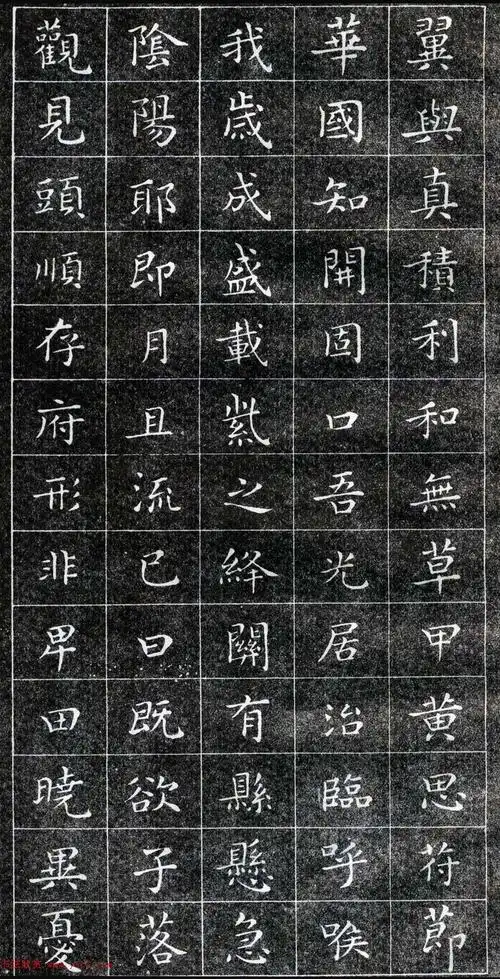 翼與真積利和無草甲黃思苻節
華國知開固口吾光居治臨呼喉
我歳成盛載紫之絳關有縣懸急
陰陽耶即月且流已曰既欲子落
觀見頭順存府形非卑田曉異憂